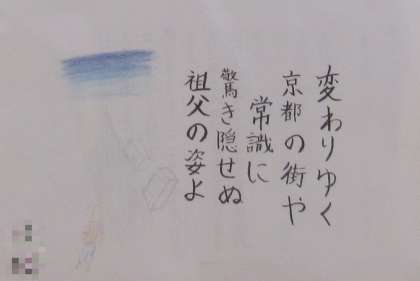 変わりゆく
京都の街や
常識に
驚き隠せぬ
祖父の姿よ